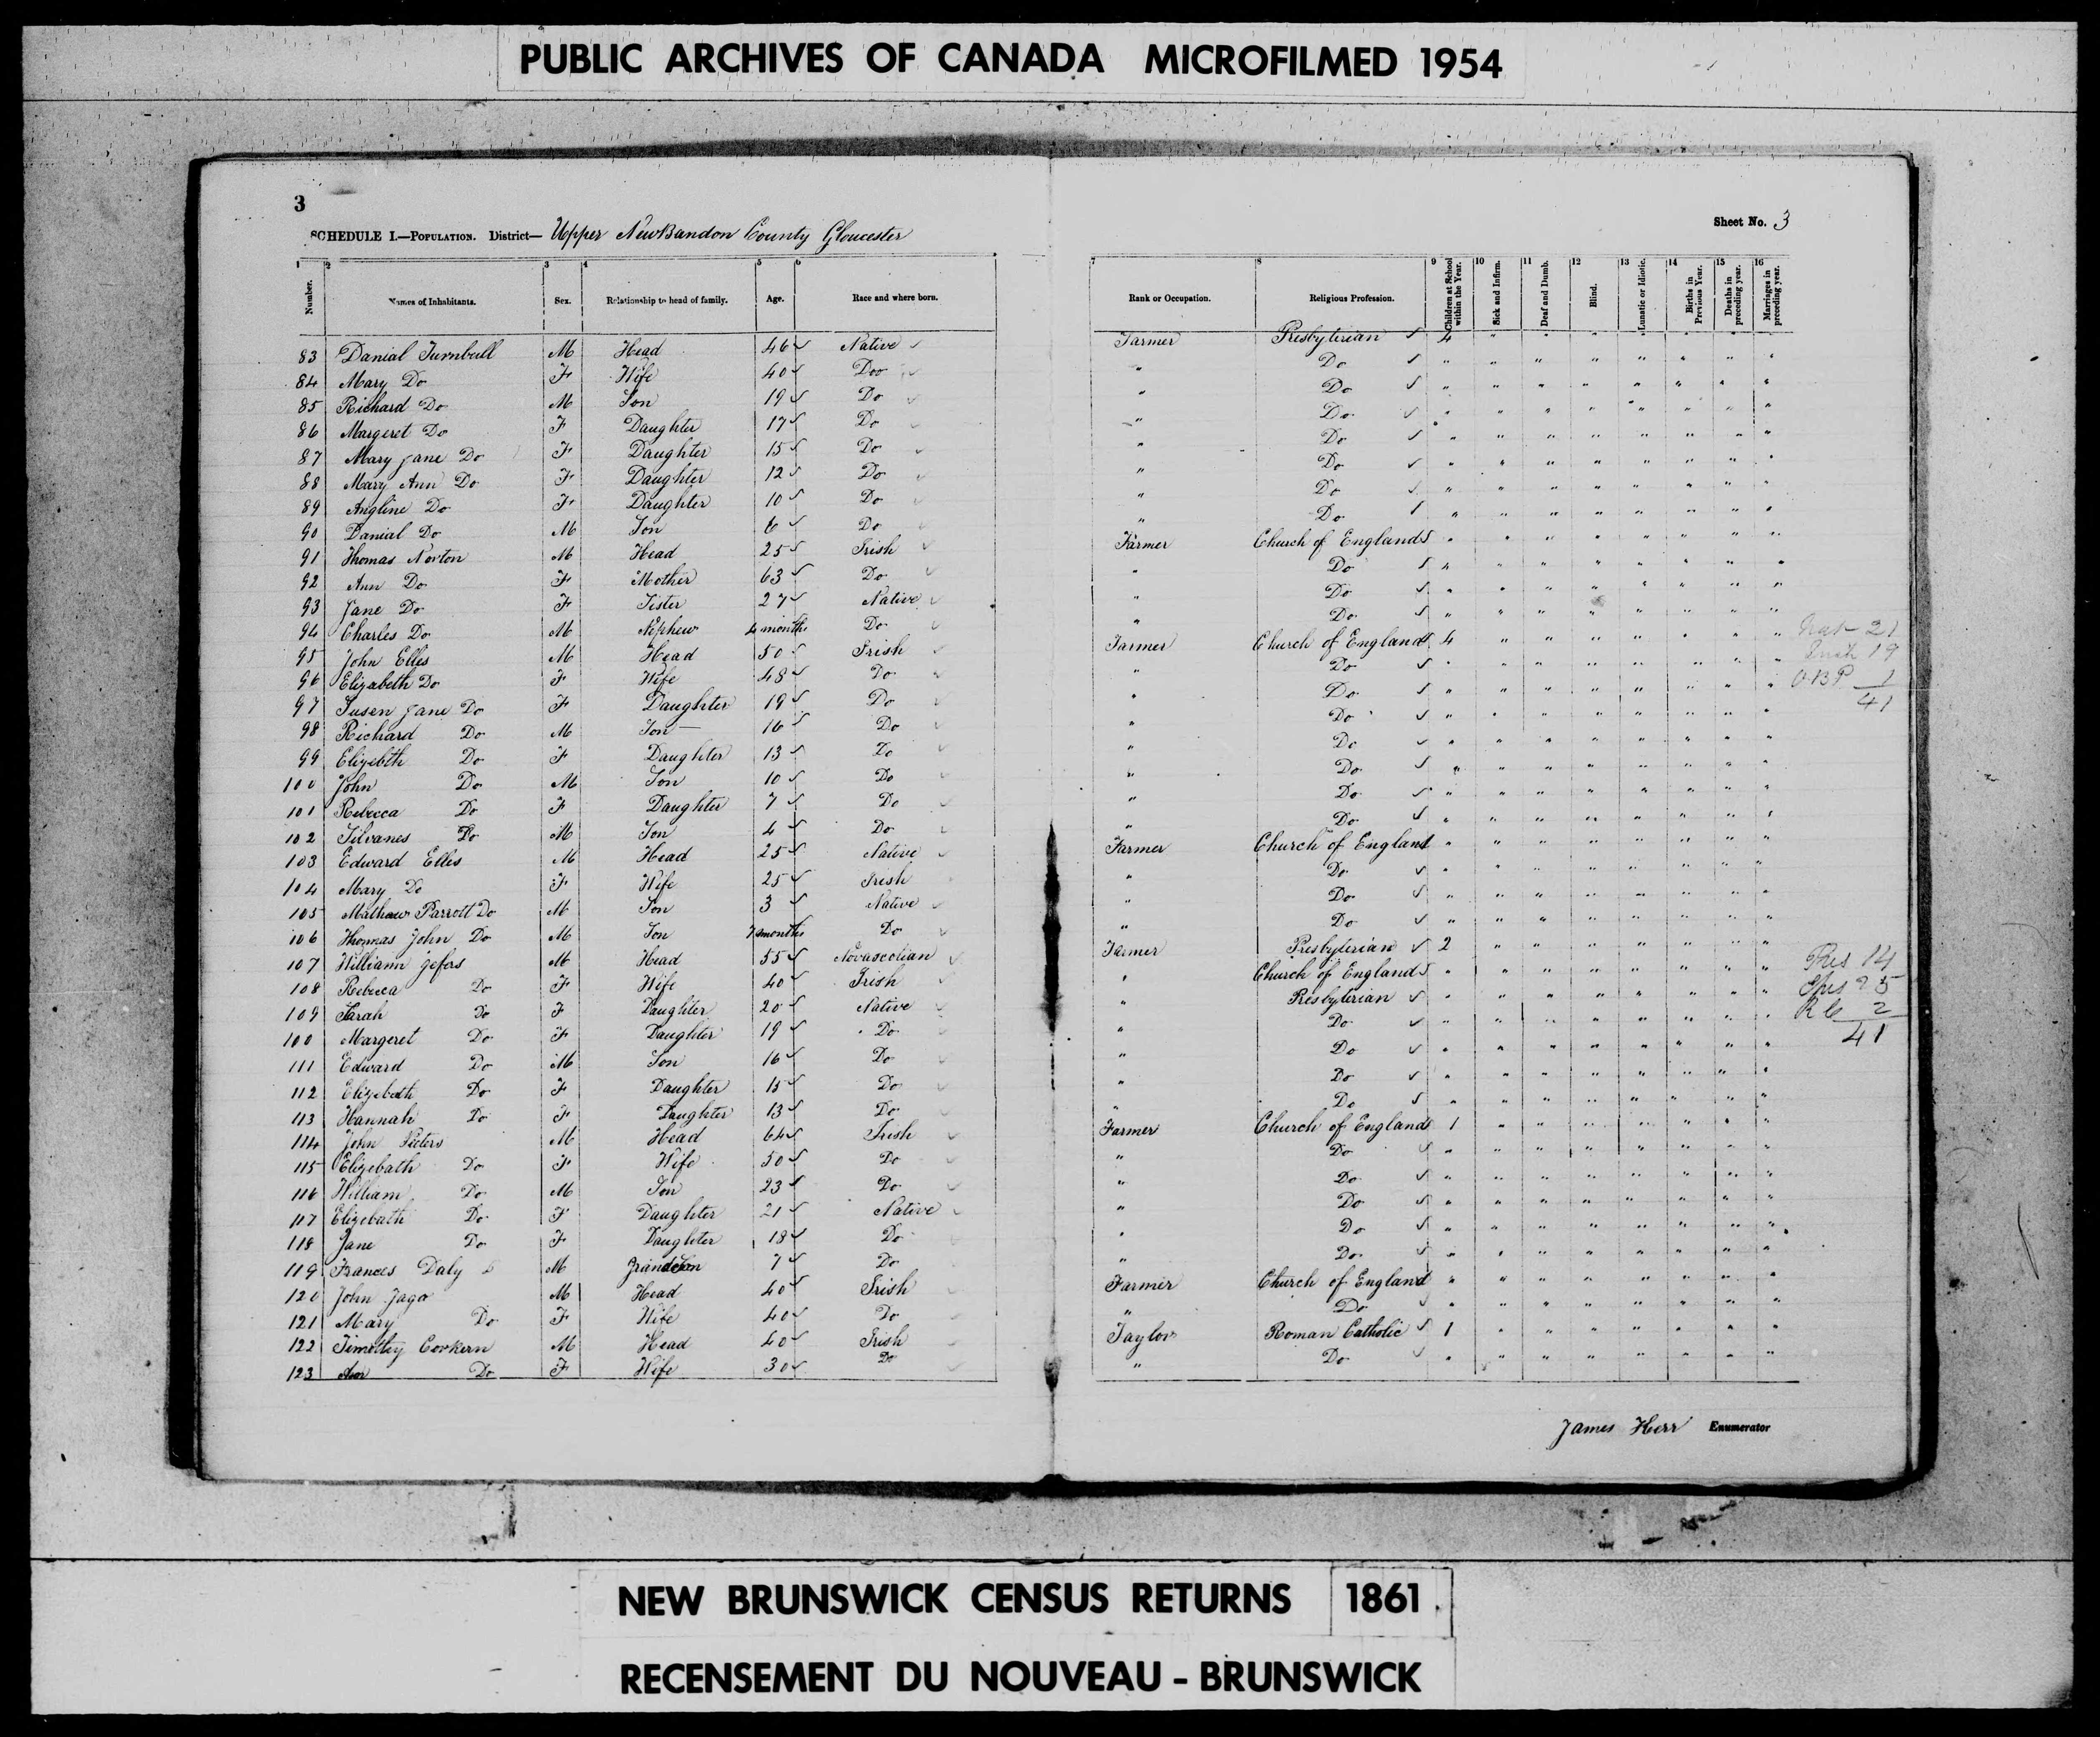 PUBLIC ARCHIVES OF CANADA MICROFILMED 1954
3
Sheet No. 3
SCHEDULE I.—POPULATION. District— Upper NewBandon County Gloucester
1 2 3 4 5 6 7 8 9 10 11 12 13 14 15 16
Number. Names of Inhabitants. Sex. Relationship to head of family. Age. Race and where born. Rank or Occupation. Religious Profession. Children at School within the Year. Sick and Infirm. Deaf and Dumb. Blind. Lunatic or Idiotic. Births in Previous Year. Deaths in preceding year. Marriages in preceding year.
83 Danial Turnbull M Head 46 Native Farmer Presbyterian 4
84 Mary Do F Wife 40 Doo " Do
85 Richard Do M Son 19 Do " Do
86 Margeret Do F Daughter 17 Do " Do
87 Mary Jane Do F Daughter 15 Do " Do
88 Mary Ann Do F Daughter 12 Do " Do
89 Angline Do F Daughter 10 Do " Do
90 Danial Do M Son 6 Do " Do
91 Thomas Norton M Head 25 Irish Farmer Church of England
92 Ann Do F Mother 63 Do " Do
93 Jane Do F Sister 27 Native " Do
94 Charles Do M Nephew 4 months Do " Do
95 John Elles M Head 50 Irish Farmer Church of England 4
96 Elizabeth Do F Wife 48 Do " Do
97 Susen Jane Do F Daughter 19 Do " Do
98 Richard Do M Son 16 Do " Do
99 Elizebth Do F Daughter 13 Do " Do
100 John Do M Son 10 Do " Do
101 Rebecca Do F Daughter 7 Do " Do
102 Silvanes Do M Son 4 Do " Do
103 Edward Elles M Head 25 Native Farmer Church of England
104 Mary Do F Wife 25 Irish " Do
105 Mathaw Parrott Do M Son 3 Native " Do
106 Thomas John Do M Son months Do " Do
107 William Jefers M Head 55 Novascotian Farmer Presbyterian 2
108 Rebecca Do F Wife 40 Irish " Church of England
109 Sarah Do F Daughter 20 Native " Presbyterian
100 Margeret Do F Daughter 19 Do " Do
111 Edward Do M Son 16 Do " Do
112 Elizebath Do F Daughter 15 Do " Do
113 Hannah Do F Daughter 13 Do " Do
114 John Peters M Head 64 Irish Farmer Church of England 1
115 Elizebath Do F Wife 50 Do " Do
116 William Do M Son 23 Do " Do
117 Elizebath Do F Daughter 21 Native " Do
118 Jane Do F Daughter 18 Do " Do
119 Frances Daly M Grandson 7 Do " Do
120 John Jago M Head 40 Irish Farmer Church of England
121 Mary Do F Wife 40 Do " Do
122 Timothy Corkern M Head 40 Irish Taylor Roman Catholic 1
123 Ann Do F Wife 30 Do " Do
Nat 21
Irish 19
OBP 1
41
Pres 14
25
RC 2
41
James Kerr Enumerator
NEW BRUNSWICK CENSUS RETURNS 1861
RECENSEMENT DU NOUVEAU-BRUNSWICK